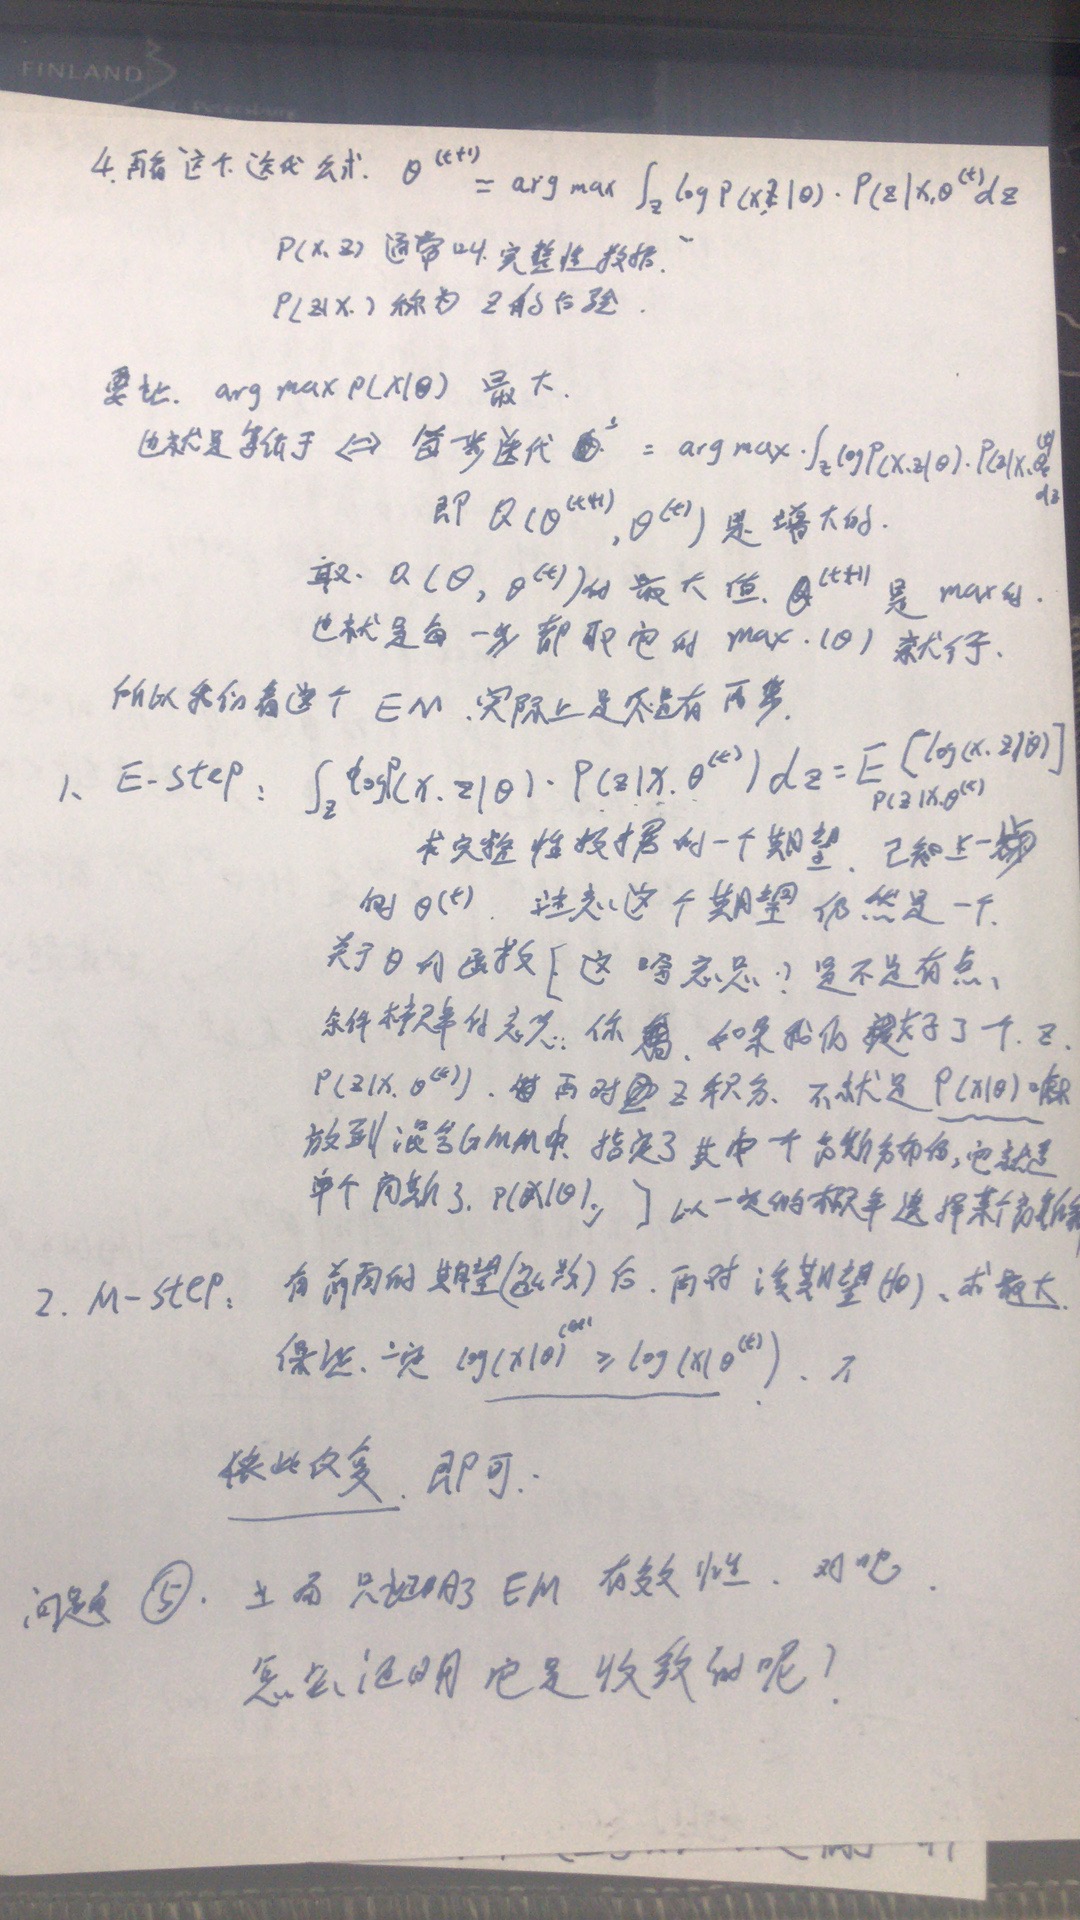 FINLAND
4.再看这个迭代公式. θ^(t+1) = arg max ∫_z log P(x,z|θ)·P(z|x,θ^(t)) dz
P(x,z) 通常叫 完整性数据.
P(z|x.) 称为 z的后验.
要让. arg max P(x|θ) 最大.
也就是等价于 ⇔ 每步迭代 = arg max·∫_z log P(x,z|θ)·P(z|x,θ^(t)) dz
即 Q(θ^(t+1), θ^(t)) 是增大的.
取. Q(θ, θ^(t))的最大值、θ^(t+1) 是 max的.
也就是每一步都取它的 max.(θ) 就行.
所以我们看这个 EM、实际上是不是有两步.
1、E-step: ∫_z log P(x,z|θ)·P(z|x,θ^(t)) dz = E_P(z|x,θ^(t)) [log(x,z|θ)]
求完整性数据的一个期望、已知上一步
的 θ^(t). 注意这个期望仍然是一个
关于θ的函数[这啥意思?是不是有点、
条件概率的意思: 你看、如果我们 了一个 z.
P(z|x,θ^(t)). 再对 z 积分、不就是 P(x|θ)嘛
放到混合GMM中、指定了其中一个高斯分布后,它就是
单个高斯了、P(x|θ). ] 以一定的概率选择某个高斯
2. M-step: 有前面的期望(函数)后.再对该期望(θ)、求最大.
保证、一定 log(x|θ)^(t+1) ≥ log(x|θ^(t))、不
依此反复.即可.
问题⑤. 上面只证明了EM 有效性、对吧.
怎么证明它是收敛的呢?